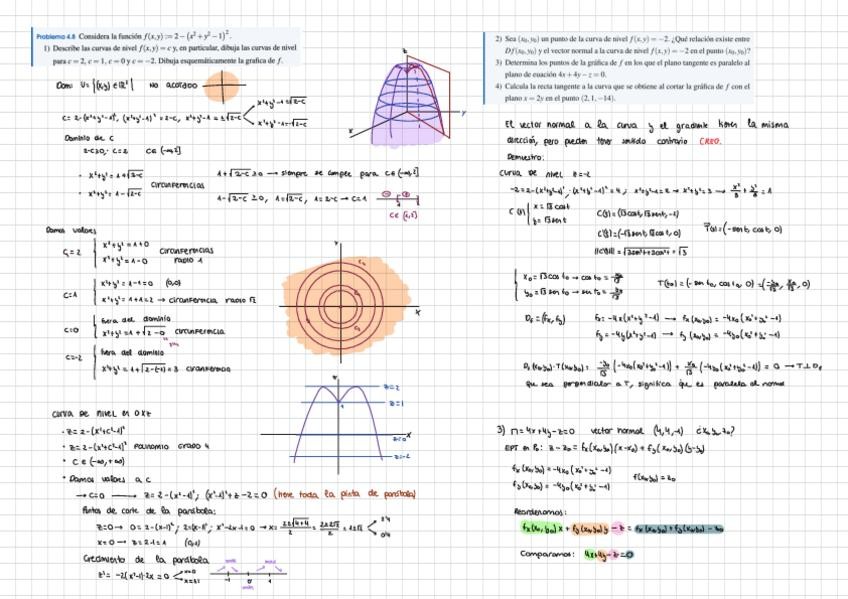 Problema 4.8 Considera la función f(x,y) := 2 − (x² + y² − 1)².
1) Describe las curvas de nivel f(x,y) = c y, en particular, dibuja las curvas de nivel
para c = 2, c = 1, c = 0 y c = −2. Dibuja esquemáticamente la grafica de f.
Dom: U = {(x,y) ∈ R²} NO acotado
x²+y²-1 = √2-c
c = 2-(x²+y²-1)², (x²+y²-1)² = 2-c, x²+y²-1 = ±√2-c
x²+y²-1 = -√2-c
Dominio de c
2-c≥0, c=2 c∈(-∞,2]
• x²+y² = 1+√2-c
• x²+y² = 1-√2-c
circunferencias
1+√2-c ≥0 → siempre se cumple para c∈(-∞,2]
1-√2-c ≥0, 1=√2-c, 1=2-c → c=1
c∈[1,2]
Damos valores
C=2
x²+y² = 1+0
x²+y² = 1-0
circunferencias
radio 1
C=1
x²+y² = 1-1=0 (0,0)
x²+y² = 1+1=2 → circunferencia radio √2
C=0
fuera del dominio
x²+y² = 1+√2-0 circunferencia
C=-2
fuera del dominio
x²+y² = 1+√2-(-2) = 3 circunferencia
z=2
z=1
z=0
z=-2
CURVA DE NIVEL en OXZ
• z = 2-(x²+c²-1)²
• z = 2-(x²+c²-1)² Polinomio grado 4
• c ∈ (-∞,+∞)
• Damos valores a c
→ c=0 → z = 2-(x²-1)², (x²-1)²+z-2=0 (tiene toda la pinta de parábola)
Puntos de corte de la parábola:
x=0 → z=2-1=1 (0,1)
Crecimiento de la parábola
z' = -2(x²-1)·2x = 0
x=0
x=±1
2) Sea (x₀,y₀) un punto de la curva de nivel f(x,y) = −2. ¿Qué relación existe entre
Df(x₀,y₀) y el vector normal a la curva de nivel f(x,y) = −2 en el punto (x₀,y₀)?
3) Determina los puntos de la gráfica de f en los que el plano tangente es paralelo al
plano de ecuación 4x + 4y − z = 0.
4) Calcula la recta tangente a la curva que se obtiene al cortar la gráfica de f con el
plano x = 2y en el punto (2, 1, −14).
El vector normal a la curva y el gradiente tienen la misma
dirección, pero pueden tener sentido contrario CREO.
Demuestro:
CURVA DE NIVEL z=-2
-2 = 2-(x²+y²-1)², (x²+y²-1)² = 4, x²+y²-1 = 2 → x²+y² = 3 → x²/3 + y²/3 = 1
C(t)
x = √3 cos t
y = √3 sen t
C(t) = (√3 cos t, √3 sen t, -2)
C'(t) = (-√3 sen t, √3 cos t, 0)
T(t) = (-sen t, cos t, 0)
||C'(t)|| = √3sen²t+3cos²t = √3
x₀ = √3 cos t₀ → cos t₀ = x₀/√3
y₀ = √3 sen t₀ → sen t₀ = y₀/√3
T(t₀) = (-sen t₀, cos t₀, 0) = (-y₀/√3, x₀/√3, 0)
Df = (fx, fy)
fx = -4x(x²+y²-1) → fx(x₀,y₀) = -4x₀(x₀²+y₀²-1)
fy = -4y(x²+y²-1) → fy(x₀,y₀) = -4y₀(x₀²+y₀²-1)
Df(x₀,y₀)·T(x₀,y₀) = -y₀/√3 (-4x₀(x₀²+y₀²-1)) + x₀/√3 (-4y₀(x₀²+y₀²-1)) = 0 → T⊥Df
Que sea perpendicular a T, significa que es paralela al normal
3) Π = 4x+4y-z=0 vector normal (4,4,-1) ¿x₀,y₀,z₀?
EPT en P₀: z-z₀ = fx(x₀,y₀)(x-x₀) + fy(x₀,y₀)(y-y₀)
fx(x₀,y₀) = -4x₀(x₀²+y₀²-1)
f(x₀,y₀) = z₀
fy(x₀,y₀) = -4y₀(x₀²+y₀²-1)
Reordenamos:
Comparamos: 4x+4y-z=0